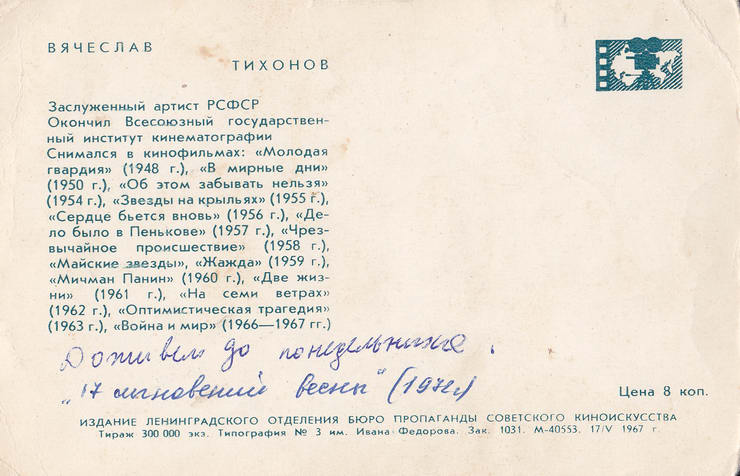 ВЯЧЕСЛАВ
ТИХОНОВ
Заслуженный артист РСФСР
Окончил Всесоюзный государствен-
ный институт кинематографии
Снимался в кинофильмах: «Молодая
гвардия» (1948 г.), «В мирные дни»
(1950 г.), «Об этом забывать нельзя»
(1954 г.), «Звезды на крыльях» (1955 г.),
«Сердце бьется вновь» (1956 г.), «Де-
ло было в Пенькове» (1957 г.), «Чрез-
вычайное происшествие» (1958 г.),
«Майские звезды», «Жажда» (1959 г.),
«Мичман Панин» (1960 г.), «Две жиз-
ни» (1961 г.), «На семи ветрах»
(1962 г.), «Оптимистическая трагедия»
(1963 г.), «Война и мир» (1966—1967 гг.)
Доживем до понедельника.
„17 мгновений весны" (1972г)
Цена 8 коп.
ИЗДАНИЕ ЛЕНИНГРАДСКОГО ОТДЕЛЕНИЯ БЮРО ПРОПАГАНДЫ СОВЕТСКОГО КИНОИСКУССТВА
Тираж 300 000 экз. Типография № 3 им. Ивана Федорова. Зак. 1031. М-40553. 17/V 1967 г.